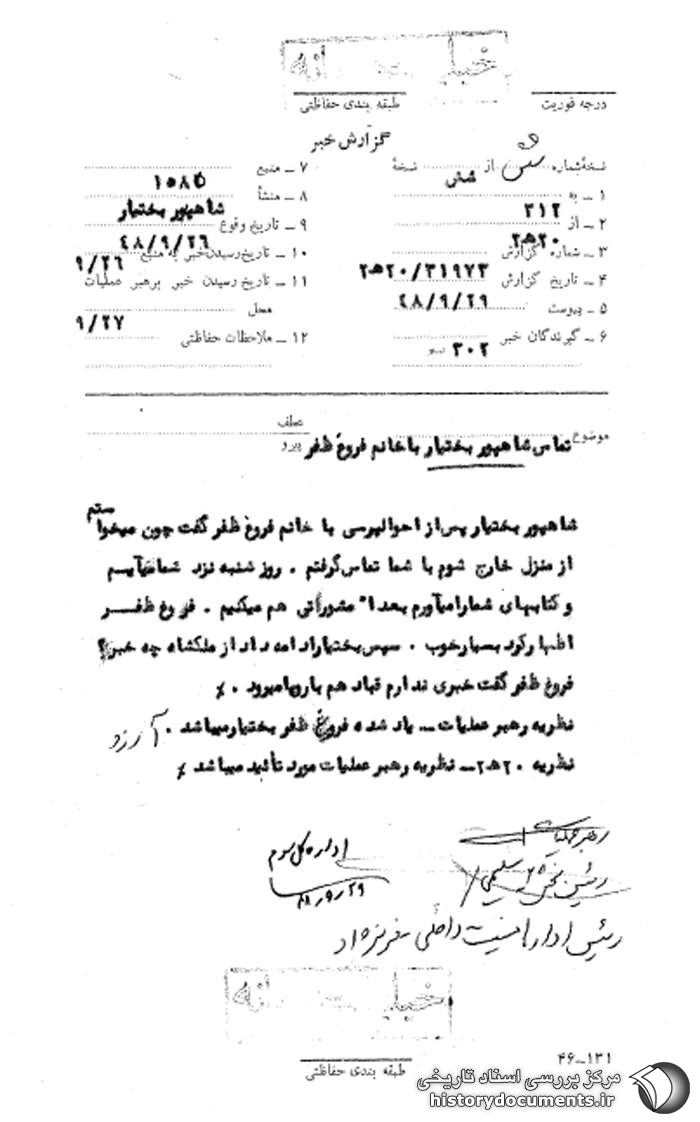 خیلی محرمانه
درجه فوریت
طبقه بندی حفاظتی
گزارش خبر
نسخه‌شماره از شش نسخه
۱ ــ به ۳۱۲
۲ ــ از ۲۰هـ۲
۳ ــ شماره گزارش ۲۰/۳۱۹۷۳هـ۲
۴ ــ تاریخ گزارش ۴۸/۹/۲۹
۵ ــ پیوست
۶ ــ گیرندگان خبر ۳۰۲
۷ ــ منبع ۱۰۸۵
۸ ــ منشأ شاهپور بختیار
۹ ــ تاریخ وقوع ۴۸/۹/۲۶
۱۰ ــ تاریخ رسیدن خبر به منبع ۹/۲۶
۱۱ ــ تاریخ رسیدن خبر برهبر عملیات
محل ۹/۲۷
۱۲ ــ ملاحظات حفاظتی
عطف
موضوع تماس شاهپور بختیار با خانم فروغ ظفر
شاهپور بختیار پس از احوالپرسی با خانم فروغ ظفر گفت چون میخواستم
از منزل خارج شوم با شما تماس گرفتم . روز شنبه نزد شما میآییم
و کتابهای شما را میآورم بعدا" مشوراتی هم میکنیم . فروغ ظفر
اظهار کرد بسیار خوب . سپس بختیار ادامه داد از ملکشاه چه خبر؟
فروغ ظفر گفت خبری ندارم قباد هم باروپا میرود . ٪
نظریه رهبر عملیات ــ یاد شده فروغ ظفر بختیار میباشد .
نظریه ۲۰هـ۲ ــ نظریه رهبر عملیات مورد تأئید میباشد ٪
رهبر عملیات
رئیس بخش سلیمی
اداره کل سوم
رئیس اداره امنیت داخلی
خیلی محرمانه
طبقه بندی حفاظتی
۴۶ــ۱۳۱
مرکز بررسی اسناد تاریخی
historydocuments.ir